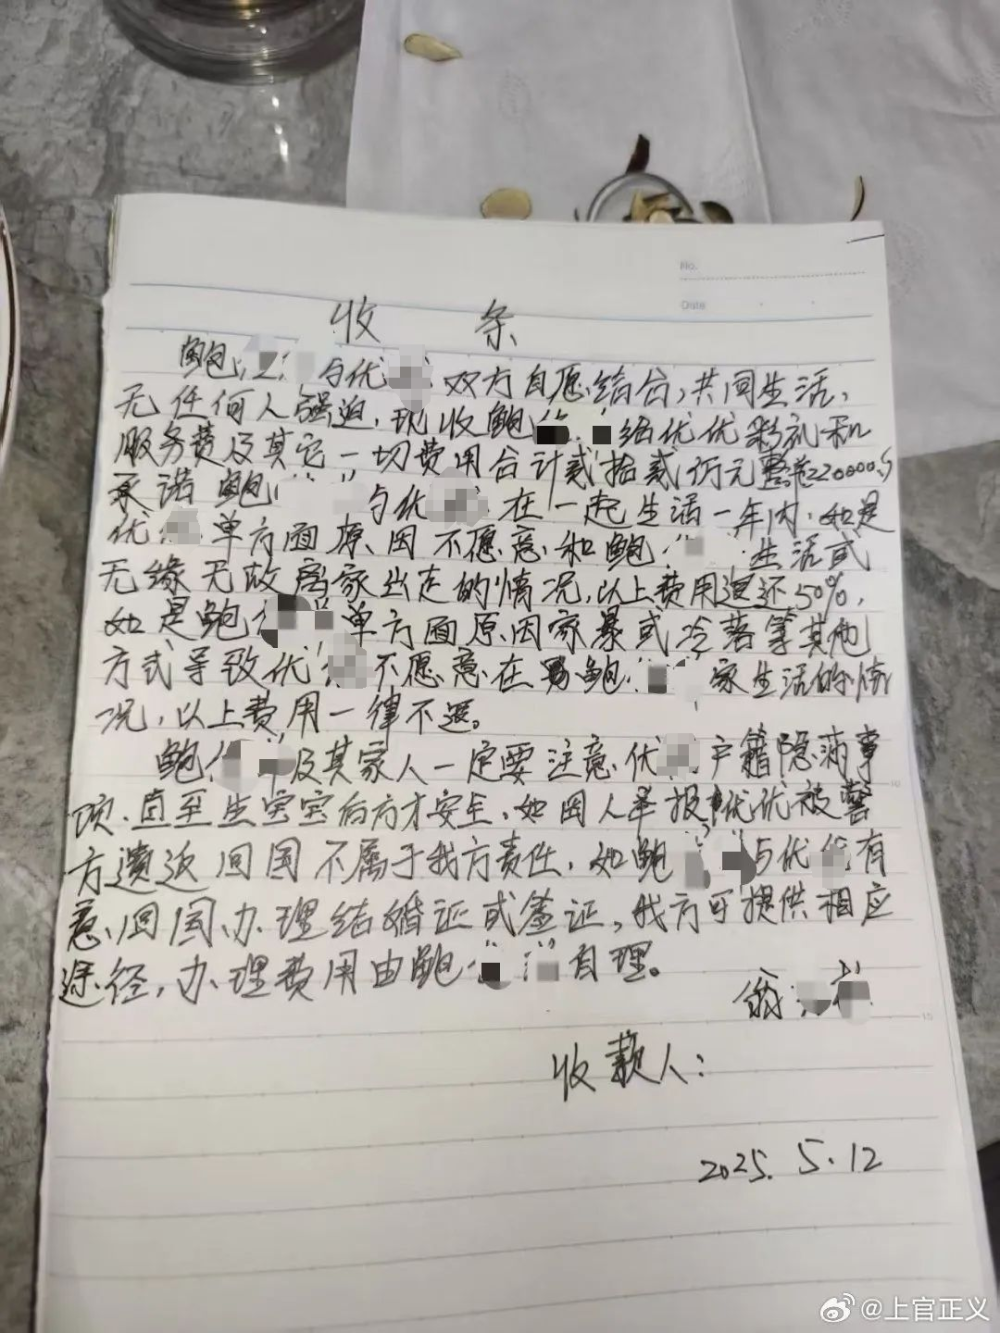 No.
Date
收 条
鲍 与优 双方自愿结合,共同生活,
无任何人强迫,现收鲍 给优优彩礼和
服务费及其它一切费用合计贰拾贰万元整 220000
承诺鲍 与优 在一起生活一年内.如是
优 单方面原因不愿意和鲍 生活或
无缘无故离家出走的情况,以上费用退还50%,
如是鲍 单方面原因家暴或冷落等其他
方式导致优 不愿意在 鲍 家生活的情
况,以上费用一律不退。
鲍 及其家人一定要注意优 户籍隐满事
项.直至生宝宝后方才安全.如因人举报 优优被警
方遣返回国不属于我方责任.如鲍 与优 有
意回国办理结婚证或签证,我方可提供相应
途径,办理费用由鲍 自理。
翁
收款人:
2025. 5.12
@上官正义